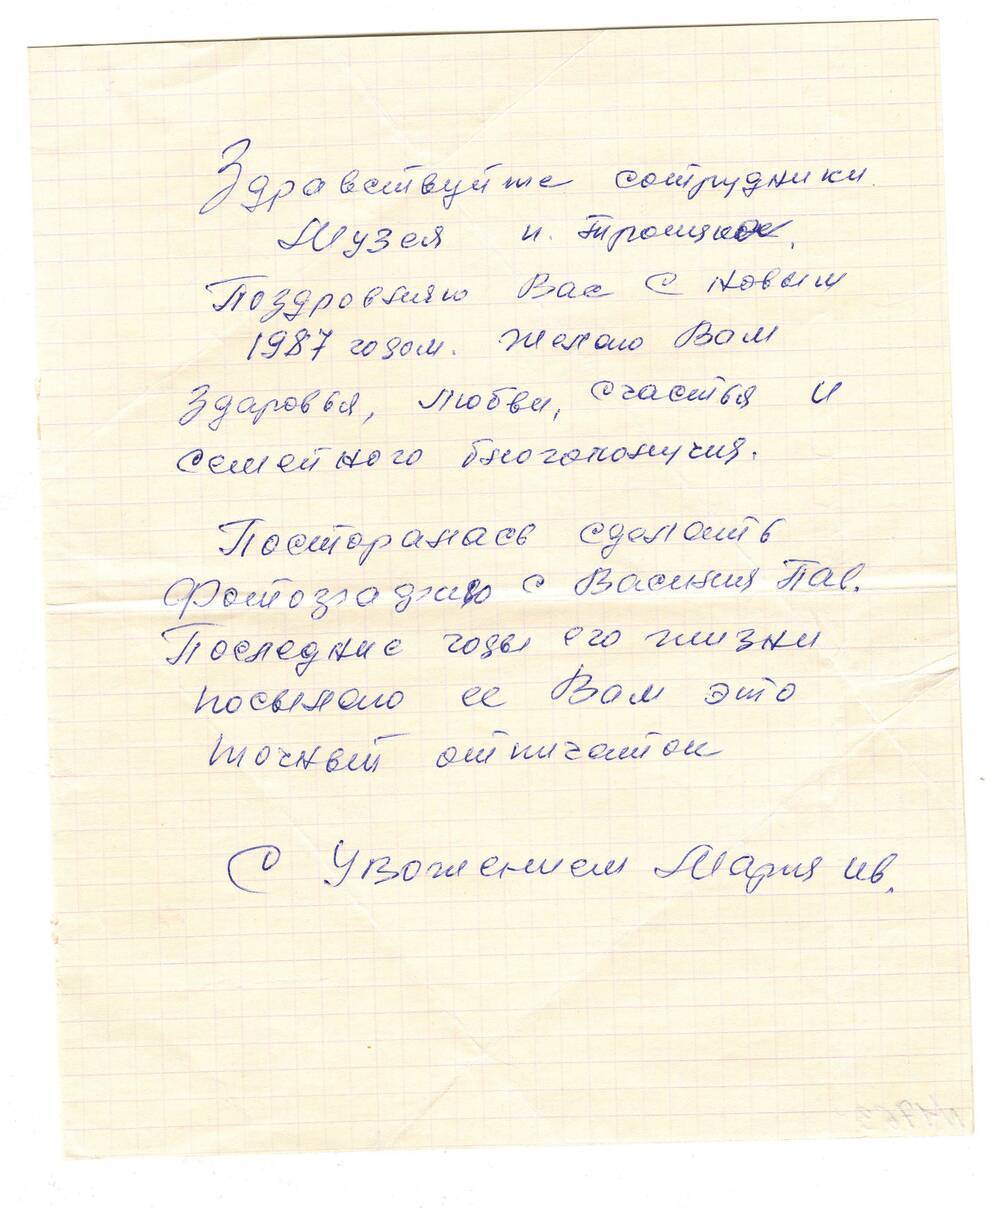 Здравствуйте сотрудники
Музея н. Троицкое.
Поздровляю Вас с новым
1987 годом. Желаю Вам
Здаровья, любви, счастья и
семейного благополучия.
Посторалась сделать
Фотографию с Василия Пав.
Последние годы его жизни
посылаю ее Вам это
точный отпичаток
С Уважением Мария Ив.